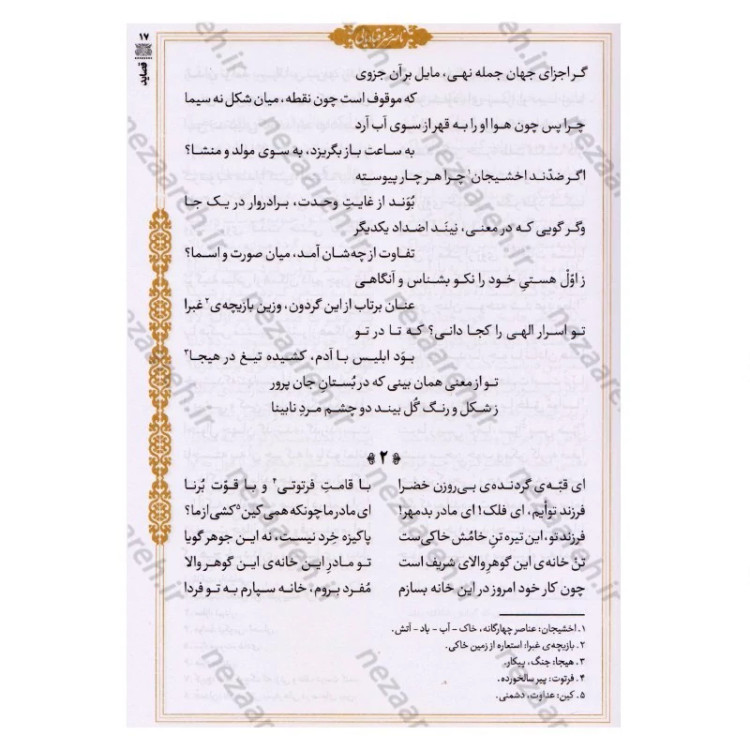 ناصرخسرو قبادیانی
۱۷
قصاید
گر اجزای جهان جمله نهی، مایل بر آن جزوی
که موقوف است چون نقطه، میان شکل نه سیما
چرا پس چون هوا او را به قهر از سوی آب آرد
به ساعت باز بگریزد، به سوی مولد و منشا؟
اگر ضدّند اخشیجان۱ چرا هر چار پیوسته
بُوَند از غایتِ وحدت، برادروار در یک جا
وگر گویی که در معنی، نِیَند اضداد یکدیگر
تفاوت از چه‌شان آمد، میان صورت و اسما؟
ز اوّل هستیِ خود را نکو بشناس و آنگاهی
عنان برتاب از این گردون، وزین بازیچه‌ی۲ غبرا
تو اسرار الهی را کجا دانی؟ که تا در تو
بوَد ابلیس با آدم، کشیده تیغ در هیجا۳
تو از معنی همان بینی که در بُستانِ جان پرور
ز شکل و رنگ گُل بیند دو چشم مردِ نابینا
۲
ای قبّه‌ی گردنده‌ی بی‌روزن خضرا
با قامتِ فرتوتی۴ و با قوّت بُرنا
فرزند توایم، ای فلک! ای مادر بدمهر!
ای مادر ما چونکه همی کین۵ کشی از ما؟
فرزند تو، این تیره تنِ خامُش خاکی‌ست
پاکیزه خِرد نیست، نه این جوهر گویا
تنْ خانه‌ی این گوهر والای شریف است
تو مادرِ این خانه‌ی این گوهر والا
چون کار خود امروز در این خانه بسازم
مُفرد بروم، خانه سپارم به تو فردا
۱. اخشیجان: عناصر چهارگانه، خاک - آب - باد - آتش.
۲. بازیچه‌ی غبرا: استعاره از زمین خاکی.
۳. هیجا: جنگ، پیکار.
۴. فرتوت: پیر سالخورده.
۵. کین: عداوت، دشمنی.
nezaareh.ir